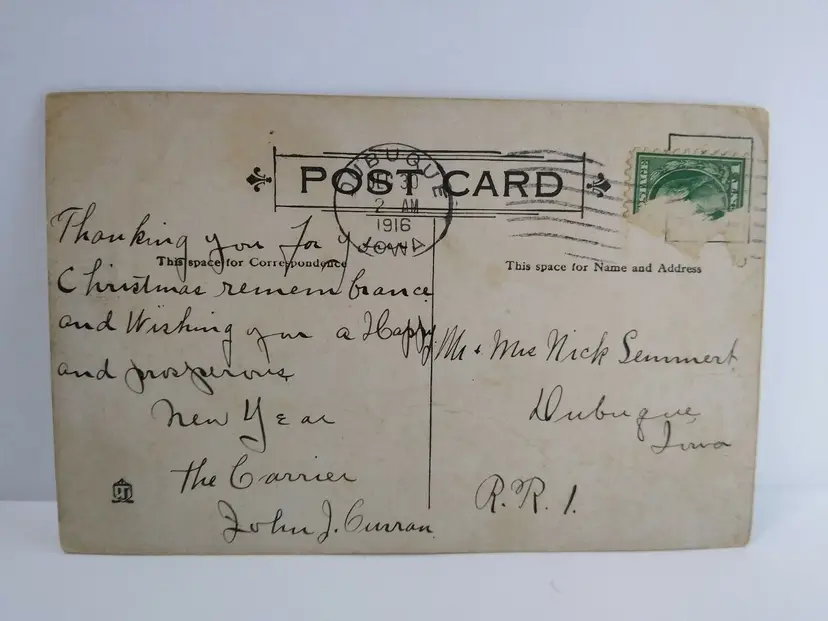 POST CARD
DUBUQUE
30
2 AM
1916
IOWA
POSTAGE
This space for Correspondence
This space for Name and Address
Thanking you for your
Christmas remembrance
and Wishing you a Happy
and prosperous
New Year
the Carrier
John J. Curran
Mr + Mrs Nick Semmert
Dubuque
Iowa
R.R. 1.